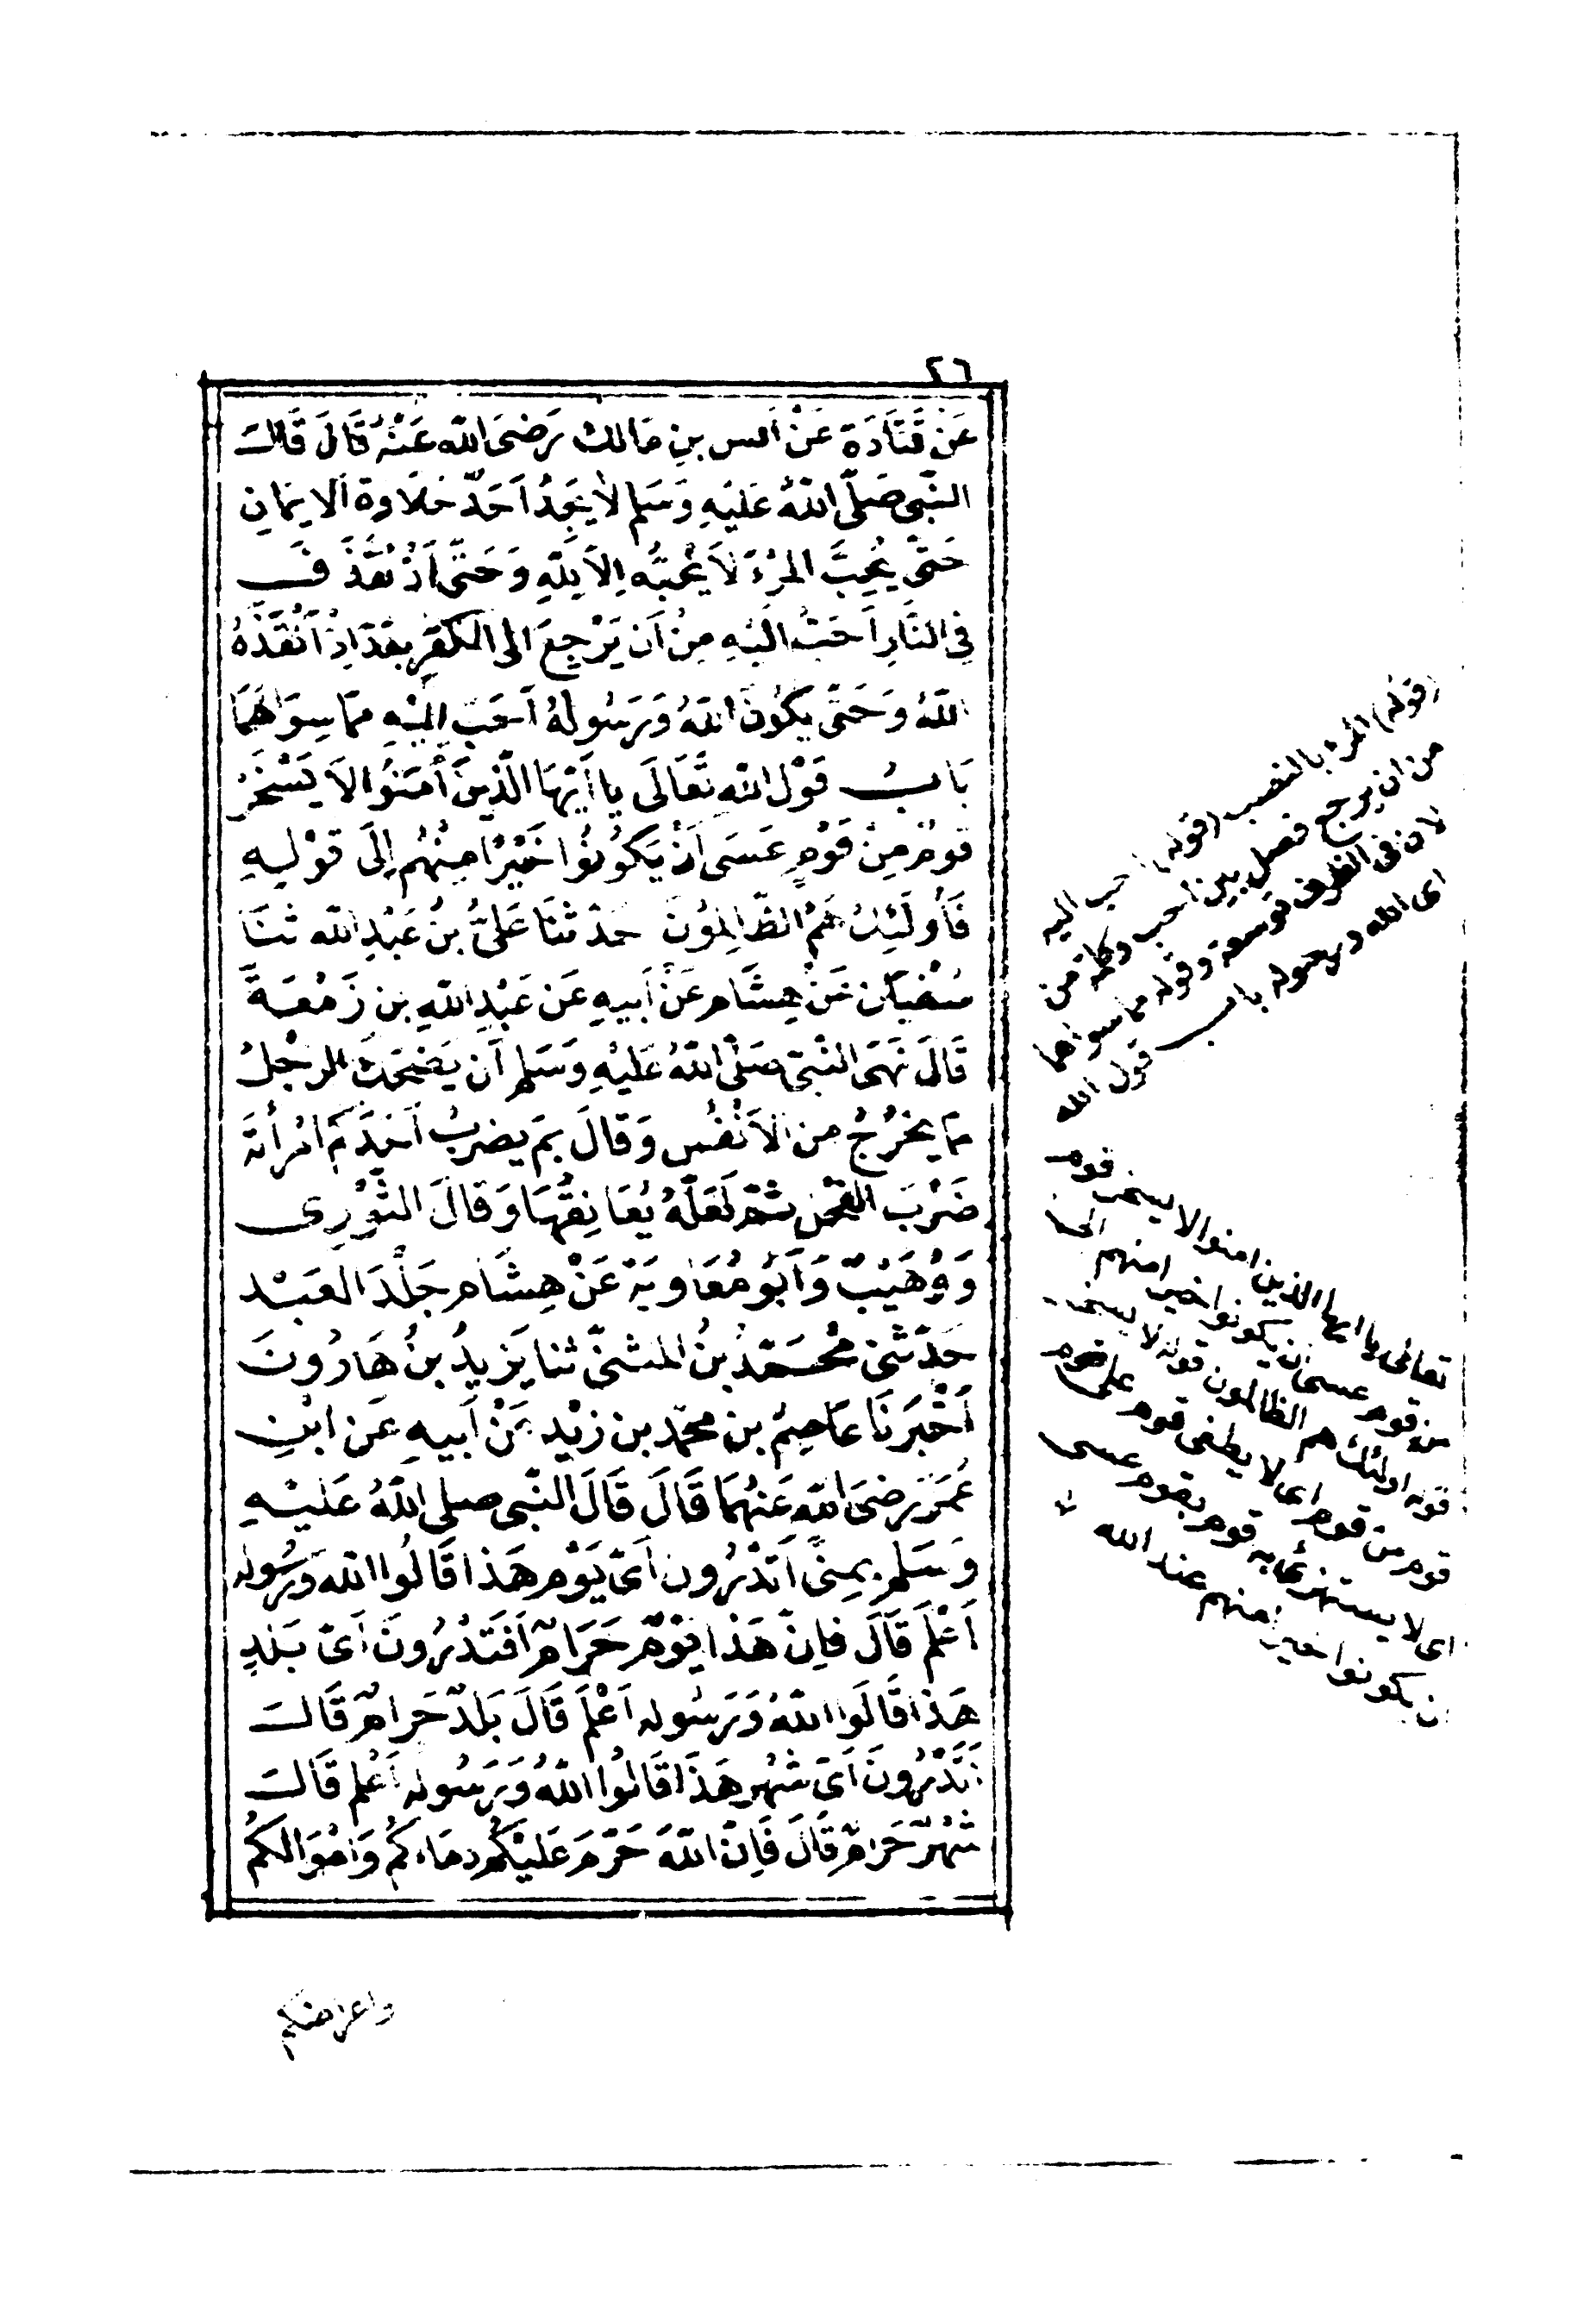 ٢٦
عَنْ قَتَادَةَ عَنْ اَنس بنِ مَالك رَضىَ الله عَنْهُ قَالَ قَالَ
النَّبِى صَلَّى اللهُ عَلَيْهِ وَسَلم لاَ يَجِدُ اَحَدٌ حَلاَوَةَ الاِيمَانِ
حَتىَّ يُحِبَّ المرْءَ لاَ يُحِبُّه اِلاَّ لِلّهِ وَحَتىَّ اَنْ يُقْذَفَ
فِى النَّارِ اَحَبُّ اليْهِ مِنْ اَن يَرْجِعَ الى الكفرِ بعْدَ اِذْ اَنْقَذَهُ
اللهُ وَحَتىَّ يكُونَ اللهُ وَرَسُولهُ اَحَبَّ اِليْهِ ممَّا سِوَاهُمَا
بَابُ قَوْل اللهِ تَعَالَى يا اَيُّهَا الَّذِينَ اٰمَنُوا لاَ يَسْخَرْ
قَوْمٌ مِنْ قَوْمٍ عَسَى اَنْ يَكوُنوُا خَيْرًا مِنْهُمْ اِلَى قوْلِهِ
فَأُولَئِكَ هُمُ الظَّالِمُونَ حَدثنَا عَلىُّ بنُ عَبْدِ الله ثَنَا
سُفْيَان عَنْ هِشَام عَنْ اَبيهِ عَن عَبْدِ اللهِ بن زَمْعَةَ
قَالَ نَهَى النَّبىّ صَلَّى اللهُ عَلَيْهِ وَسَلم اَن يَضْحَكَ الرجْلُ
ممَّا يخرُجُ من الاَنْفُسِ وَقالَ بِمَ يضربُ اَحَدُكُم امْرأتَهُ
ضَرْبَ الفَحْل ثم لَعَلَّهُ يُعَانِقُهَا وَقالَ الثوْرِى
وَوُهَيْبٌ وَاَبُو مُعَاوِيَة عَنْ هِشَام جَلْدَ العَبْد
حَدّثنى مُحَمَّدُ بنُ المثنىّ ثنا يَزيدُ بنُ هَارُونَ
اَخْبَرَنَا عَاصِمُ بن محمّد بن زيْد عَنْ اَبيهِ عَن ابْنِ
عُمَرَ رَضىَ اللهِ عَنهُمَا قَالَ قَالَ النَّبى صلى اللهُ عَليْهِ
وَسَلم بِمِنىً اَتَدْرُون اَىُّ يَوْم هَذا قَالُوا الله وَرَسُوله
اَعْلَم قَالَ فاِنَّ هَذا يوْمٌ حَرَامٌ اَفَتَدْرُونَ اَىُّ بَلدٍ
هَذا قَالُوا اللهُ وَرَسُوله اَعْلَم قَالَ بَلدٌ حَرامٌ قَالَ
اَتَدْرُونَ اَىُّ شَهْرٍ هَذَا قَالُوا اللهُ وَرَسُوله اَعْلم قَالَ
شَهْرٌ حَرَامٌ قَالَ فَاِنَّ اللهَ حَرَّمَ عَليْكُم دِمَاءكُمْ وَاَمْوَالكُمْ
(قوله) المرء بالنصب (قوله) احب اليه
من ان يرجع فصل بين احب وكلمة من
لان فى الظرف توسعة وقوله مما سواهما
اى الله ورسوله باب قول الله
تعالى يا ايها الذين امنوا لا يسخر قوم
من قوم عسى ان يكونوا خيرا منهم الى
قوله اولئك هم الظالمون قوله لا يسخر
قوم من قوم اى لا يطغى قوم على قوم
اى لا يستهزئ به قوم بقوم عسى
ان يكونوا خيرا منهم عند الله
واعراضكم